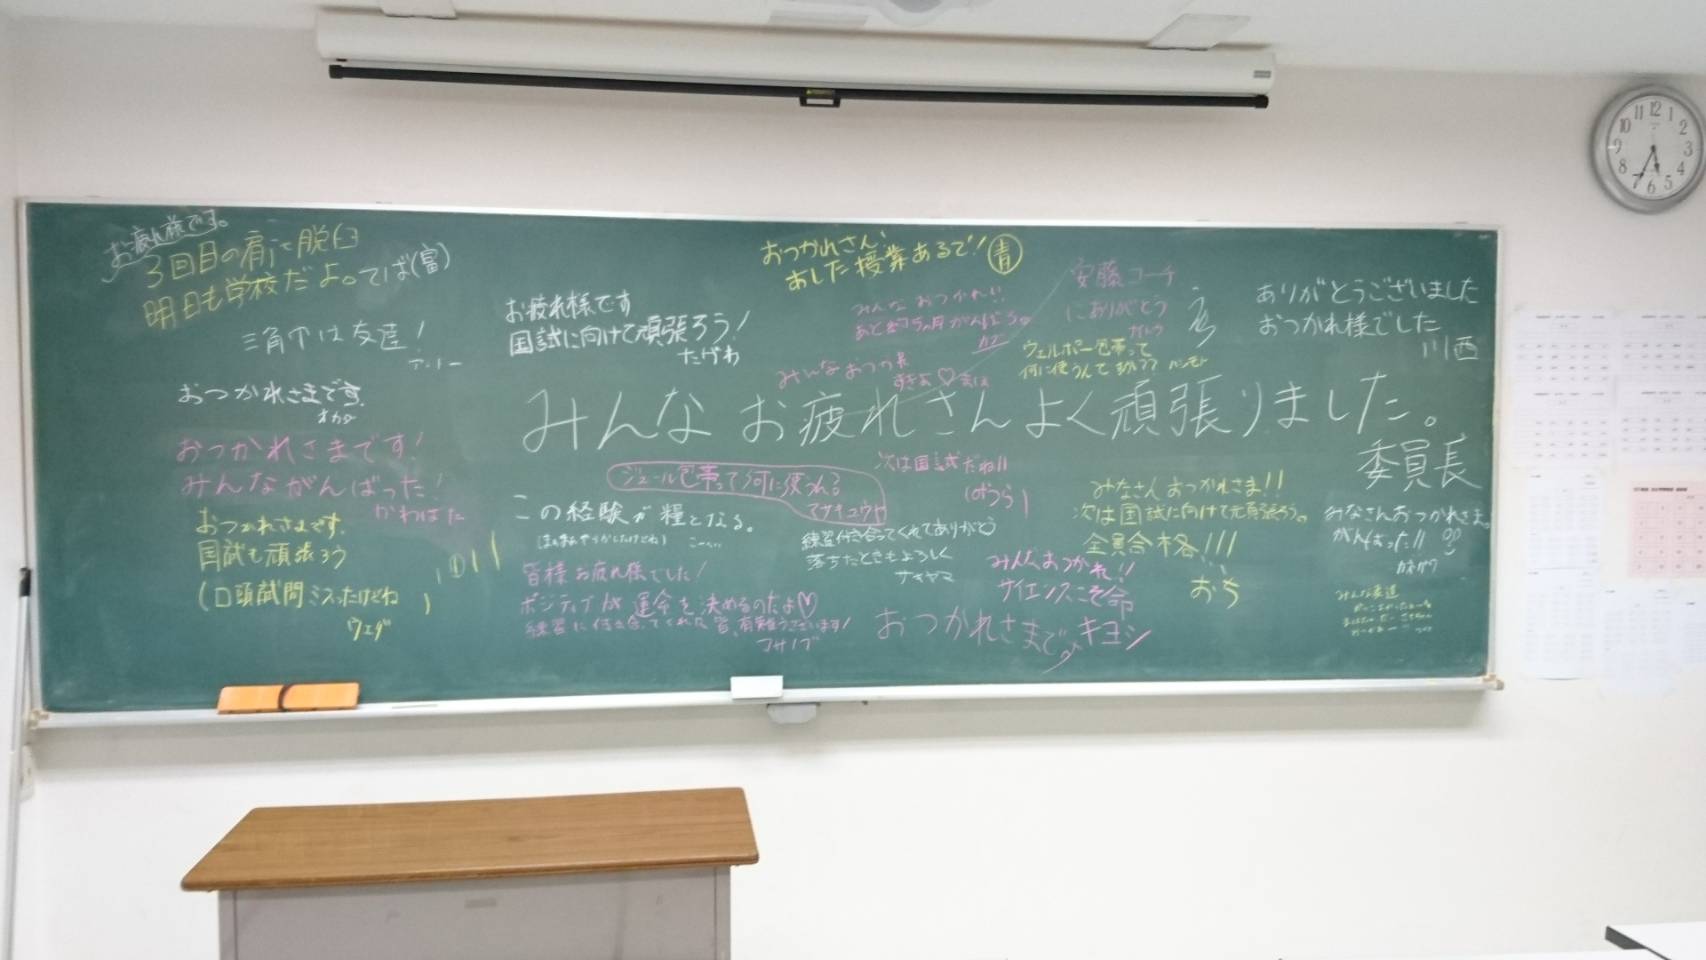 お疲れ様です。
3回目の肩に脱臼
明日も学校だよ。てば(富)
三角巾は友達!
おつかれさまです。
オカダ
おつかれさまです!
みんながんばった!
かわはた
おつかれさまです。
国試も頑張ろう
(口頭試問ミスったけどね
)
ウエダ
お疲れ様です
国試に向けて頑張ろう!
たがわ
おつかれさん、
あした授業あるで! 青
みんなおつかれ!!
あと約5ヶ月がんばろう。
安藤コーチ
にありがとう
ウェルポー包帯って
何に使うんですか??
ありがとうございました
おつかれ様でした
川西
みんなおつかれ
すきよ♡
みんなお疲れさんよく頑張りました。
委員長
ジュール包帯って何に使われる
次は国試だね!!
この経験が糧となる。
練習付き合ってくれてありがとう
落ちたときもよろしく
ナキヤマ
皆様お疲れ様でした!
ポジティブが運命を決めるのだよ♡
練習に付き合ってくれた皆、有難うございます!
マサノブ
みんなおつかれ!!
サイエンスこそ命
おつかれさまで〜す
キヨシ
みなさんおつかれさま!!
次は国試に向けて元頑張ろう。
全員合格!!!
おち
みなさんおつかれさま。
がんばった!!
みんな友達